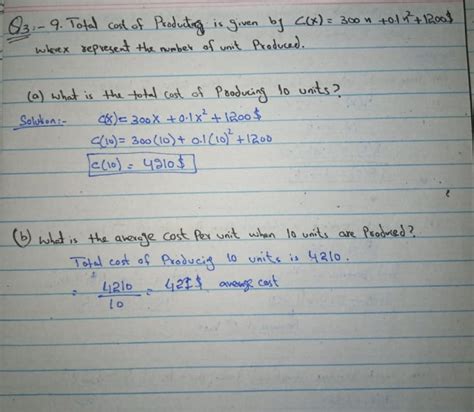 Q3:- 9. Total cost of Producing is given by C(x) = 300x + 0.1x² + 1200$
where x represent the number of unit Produced.
(a) What is the total cost of Producing 10 units?
Solution:- C(x) = 300x + 0.1x² + 1200$
C(10) = 300(10) + 0.1(10)² + 1200
C(10) = 4210$
(b) What is the average cost Per unit when 10 units are Produced?
Total cost of Producig 10 units is 4210.
= 4210/10 = 421$ average cost